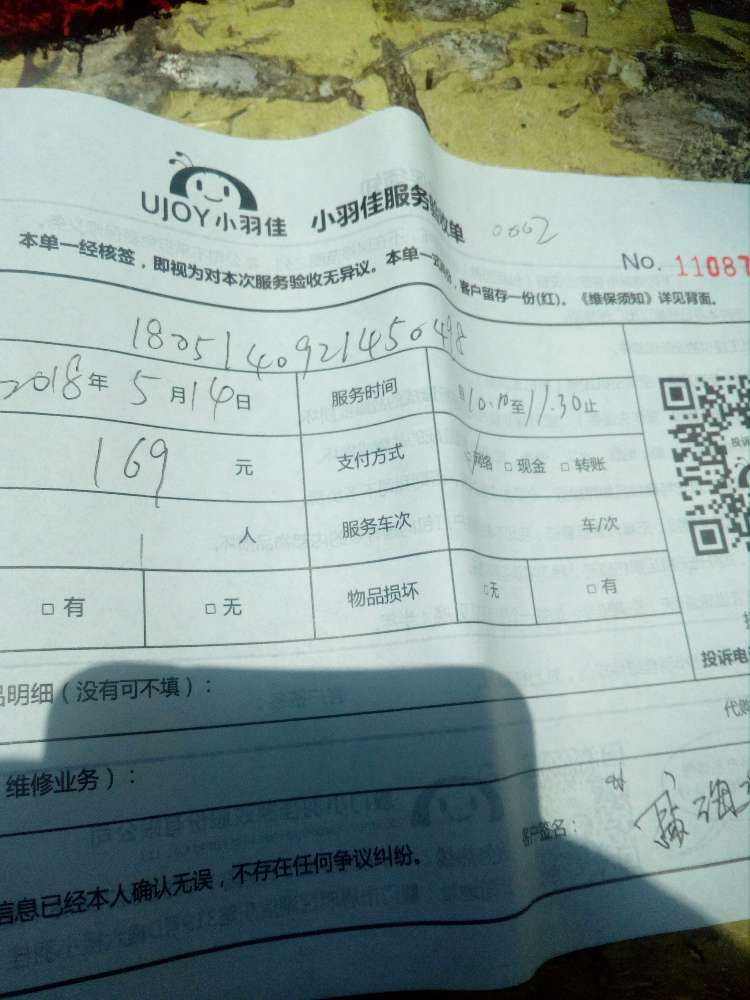 UJOY小羽佳 小羽佳服务验收单 0002
No. 11087
本单一经核签，即视为对本次服务验收无异议。本单一式两份，客户留存一份(红)。《维保须知》详见背面。
1805140921450498
2018年5月14日 服务时间 自10.10至11.30止
169元 支付方式 网络 □现金 □转账
1人 服务车次 车/次
□有 □无 物品损坏 □无 □有
投诉
投诉电
品明细（没有可不填）：
代购
维修业务）：
客户签名：
信息已经本人确认无误，不存在任何争议纠纷。